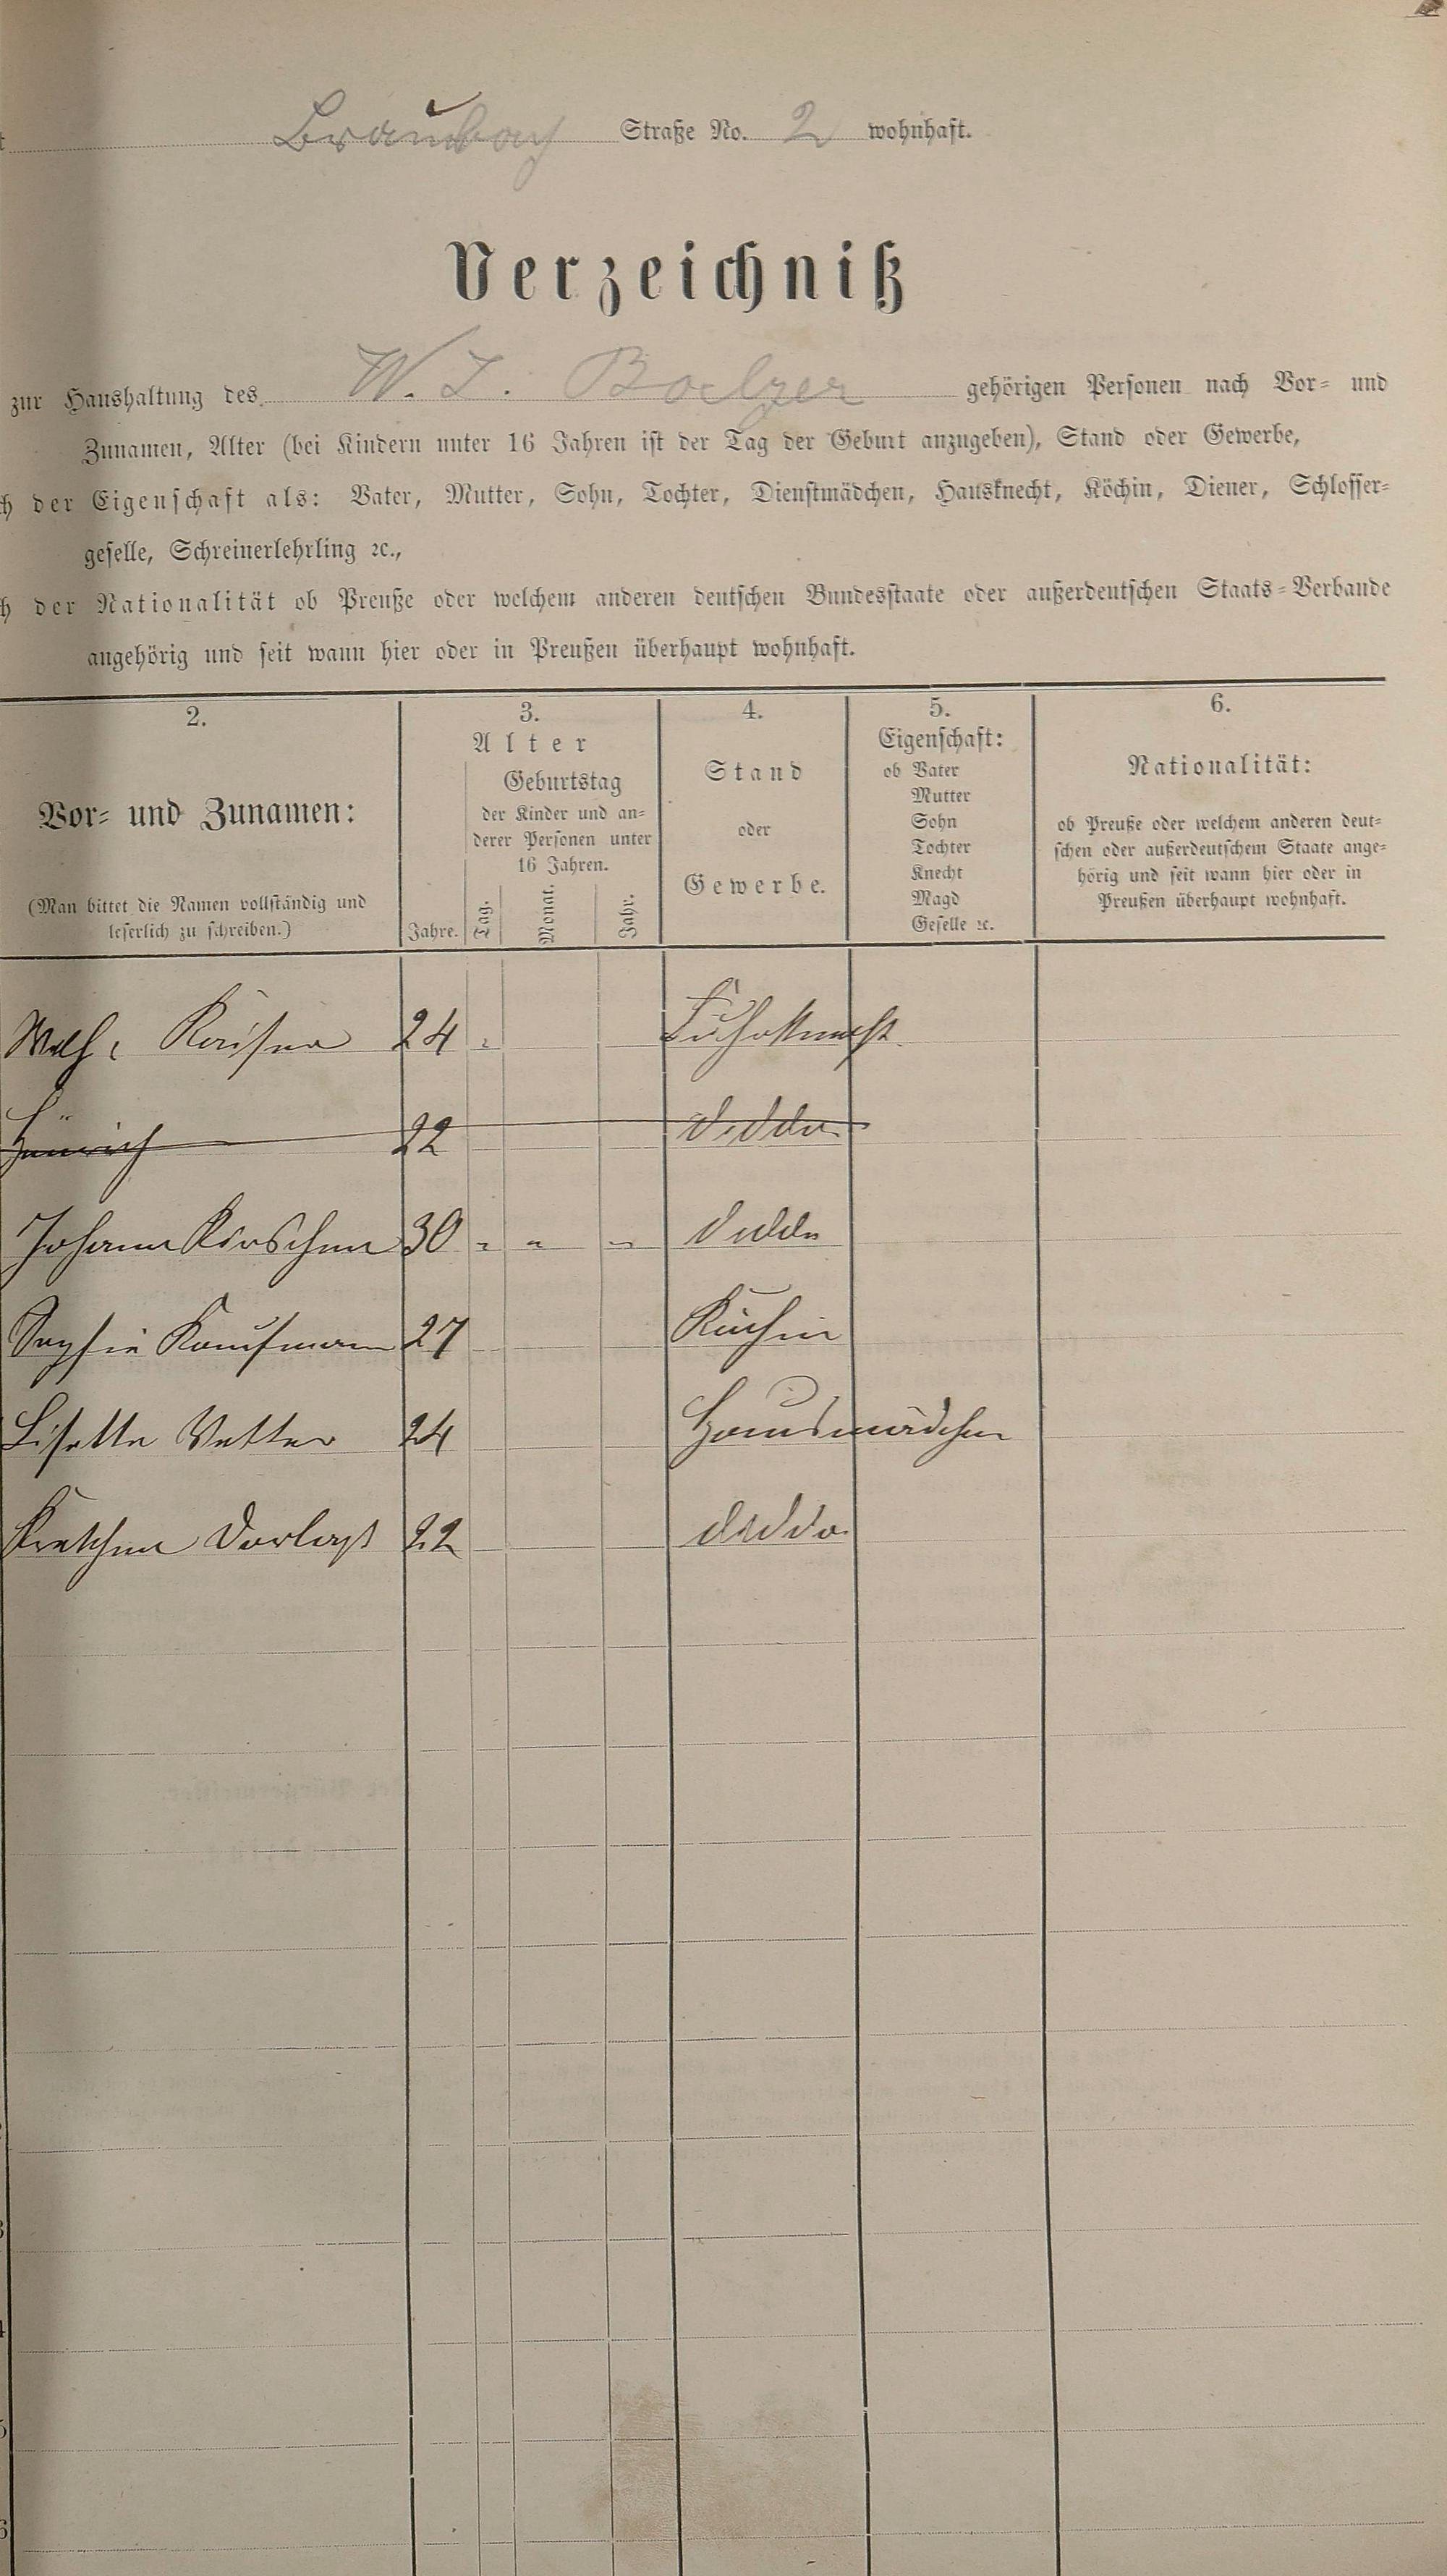 Straße No. 2 wohnhaft.
Verzeichniß
zur Haushaltung des W. gehörigen Personen nach Vor- und
Zunamen, Alter (bei Kindern unter 16 Jahren ist der Tag der Geburt anzugeben), Stand oder Gewerbe,
der Eigenschaft als: Vater, Mutter, Sohn, Tochter, Dienstmädchen, Hausknecht, Köchin, Diener, Schlosser-
geselle, Schreinerlehrling ꝛc.,
der Nationalität ob Preuße oder welchem anderen deutschen Bundesstaate oder außerdeutschen Staats-Verbande
angehörig und seit wann hier oder in Preußen überhaupt wohnhaft.
2.
Vor- und Zunamen:
(Man bittet die Namen vollständig und
leserlich zu schreiben.)
3.
Alter
Geburtstag
der Kinder und an-
derer Personen unter
16 Jahren.
Jahre. Tag. Monat. Jahr.
4.
Stand
oder
Gewerbe.
5.
Eigenschaft:
ob Vater
Mutter
Sohn
Tochter
Knecht
Magd
Geselle ꝛc.
6.
Nationalität:
ob Preuße oder welchem anderen deut-
schen oder außerdeutschem Staate ange-
hörig und seit wann hier oder in
Preußen überhaupt wohnhaft.
Wilh. Kaiser 24 Fuhrknecht
Heinrich 22 ditto
Johann Kirschner 30 ditto
Sophie Kaufmann 27 Köchin
Lisette Vetter 24 Hausmädchen
22 ditto